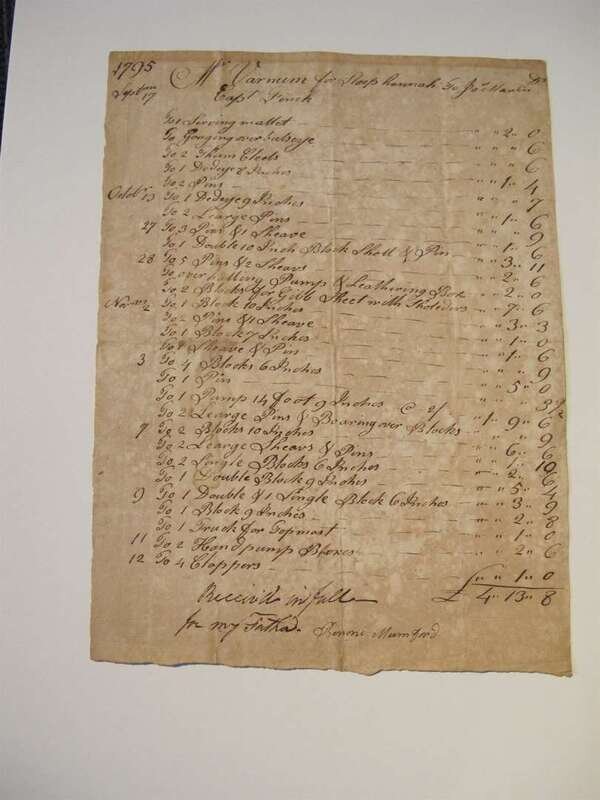 1795 Mr Varnum for Sloop hannah To Jos Dr
Septem 17 Capt Finch
To 1 Serving mallet " " 2 " 0
To Gouging over bulseye " " " 6
To 2 Tham Cleets " " " 6
To 1 Dedeye 8 Inches " " 1 " 4
To 2 Pins " " " 7
Octobr 13 To 1 Dedeye 9 Inches " " 1 " 6
To 2 Learge Pins " " " 9
27 To 3 Pins & 1 Sheave " " 1 " 6
To 1 Double 10 Inch Block Shell & Pin " " 3 " 11
28 To 5 Pins & 2 Shears " " 2 " 6
To over halling Pump & Leathering Box " " 2 " 0
To 2 Blocks for Gibb Sheet with Sholders " " 7 " 6
Novem 2 To 1 Block 10 Inches " " 3 " 3
To 2 Pins & 1 Sheave " " 1 " 0
To 1 Block 7 Inches " " 1 " 6
To 1 Sheave & Pin " " " 9
3 To 4 Blocks 6 Inches " " 5 " 0
To 1 Pin " " " 3 1/2
To 1 Pump 14 foot 9 Inches @ 2/ " 1 " 9 " 6
To 2 Learge Pins & Boaring over Blocks " " " 9
7 To 2 Blocks 10 Inches " " 6 " 6
To 2 Learge Shears & Pins " " 1 " 10
To 2 Single Blocks 6 Inches " " 2 " 6
To 1 Double Block 9 Inches " " 5 " 4
9 To 1 Double & 1 Single Block 6 Inches " " 3 " 9
To 1 Block 9 Inches " " 2 " 8
To 1 Truck for Topmast " " 1 " 0
11 To 2 Hand pump Boxes " " 2 " 6
12 To 4 Clappers " " 1 " 0
£ 4 " 13 " 8
Received in full
for my Father Benoni Mumford